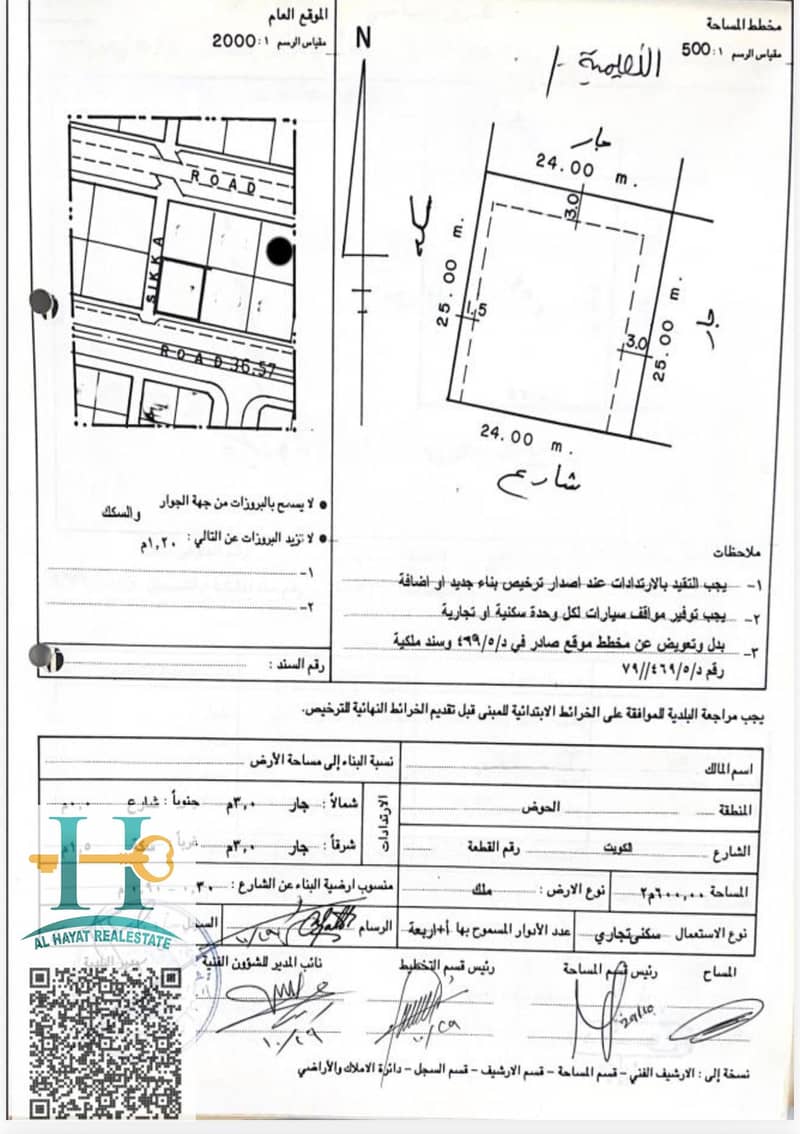 مخطط المساحة
مقياس الرسم ١: 500
الموقع العام
مقياس الرسم ١: 2000
N
جار
24.00 m.
3.0
سكه
25.00 m.
1.5
3.0
25.00 m.
جار
24.00 m.
شارع
ROAD
SIKKA
ROAD 36.57
● لا يسمح بالبروزات من جهة الجوار والسكك
● لا تزيد البروزات عن التالي: ١,٢٠م
١-
٢-
رقم السند :
ملاحظات
١- يجب التقيد بالارتدادات عند اصدار ترخيص بناء جديد او اضافة
٢- يجب توفير مواقف سيارات لكل وحدة سكنية او تجارية
٣- بدل وتعويض عن مخطط موقع صادر في د/٤٦٩/٥ وسند ملكية
رقم د/٤٦٩/٥//٧٩
يجب مراجعة البلدية للموافقة على الخرائط الابتدائية للمبنى قبل تقديم الخرائط النهائية للترخيص.
اسم المالك
نسبة البناء إلى مساحة الأرض
المنطقة
الحوض
الارتدادات
شمالاً: جار ٣,٠م جنوباً: شارع ٠,٠م
الشارع الكويت رقم القطعة
شرقاً: جار ٣,٠م غرباً سكة ١,٥م
المساحة ٦٠٠,٠٠م٢
نوع الارض: ملك
منسوب ارضية البناء عن الشارع: ٠,٣٠ - ٠,٩٠ م
نوع الاستعمال سكني تجاري
عدد الأدوار المسموح بها أ+أربعة
الرسام
السجل
AL HAYAT REALESTATE
المساح
رئيس قسم المساحة
رئيس قسم التخطيط
نائب المدير للشؤون الفنية
نسخة إلى: الارشيف الفني - قسم المساحة - قسم الارشيف - قسم السجل - دائرة الاملاك والأراضي